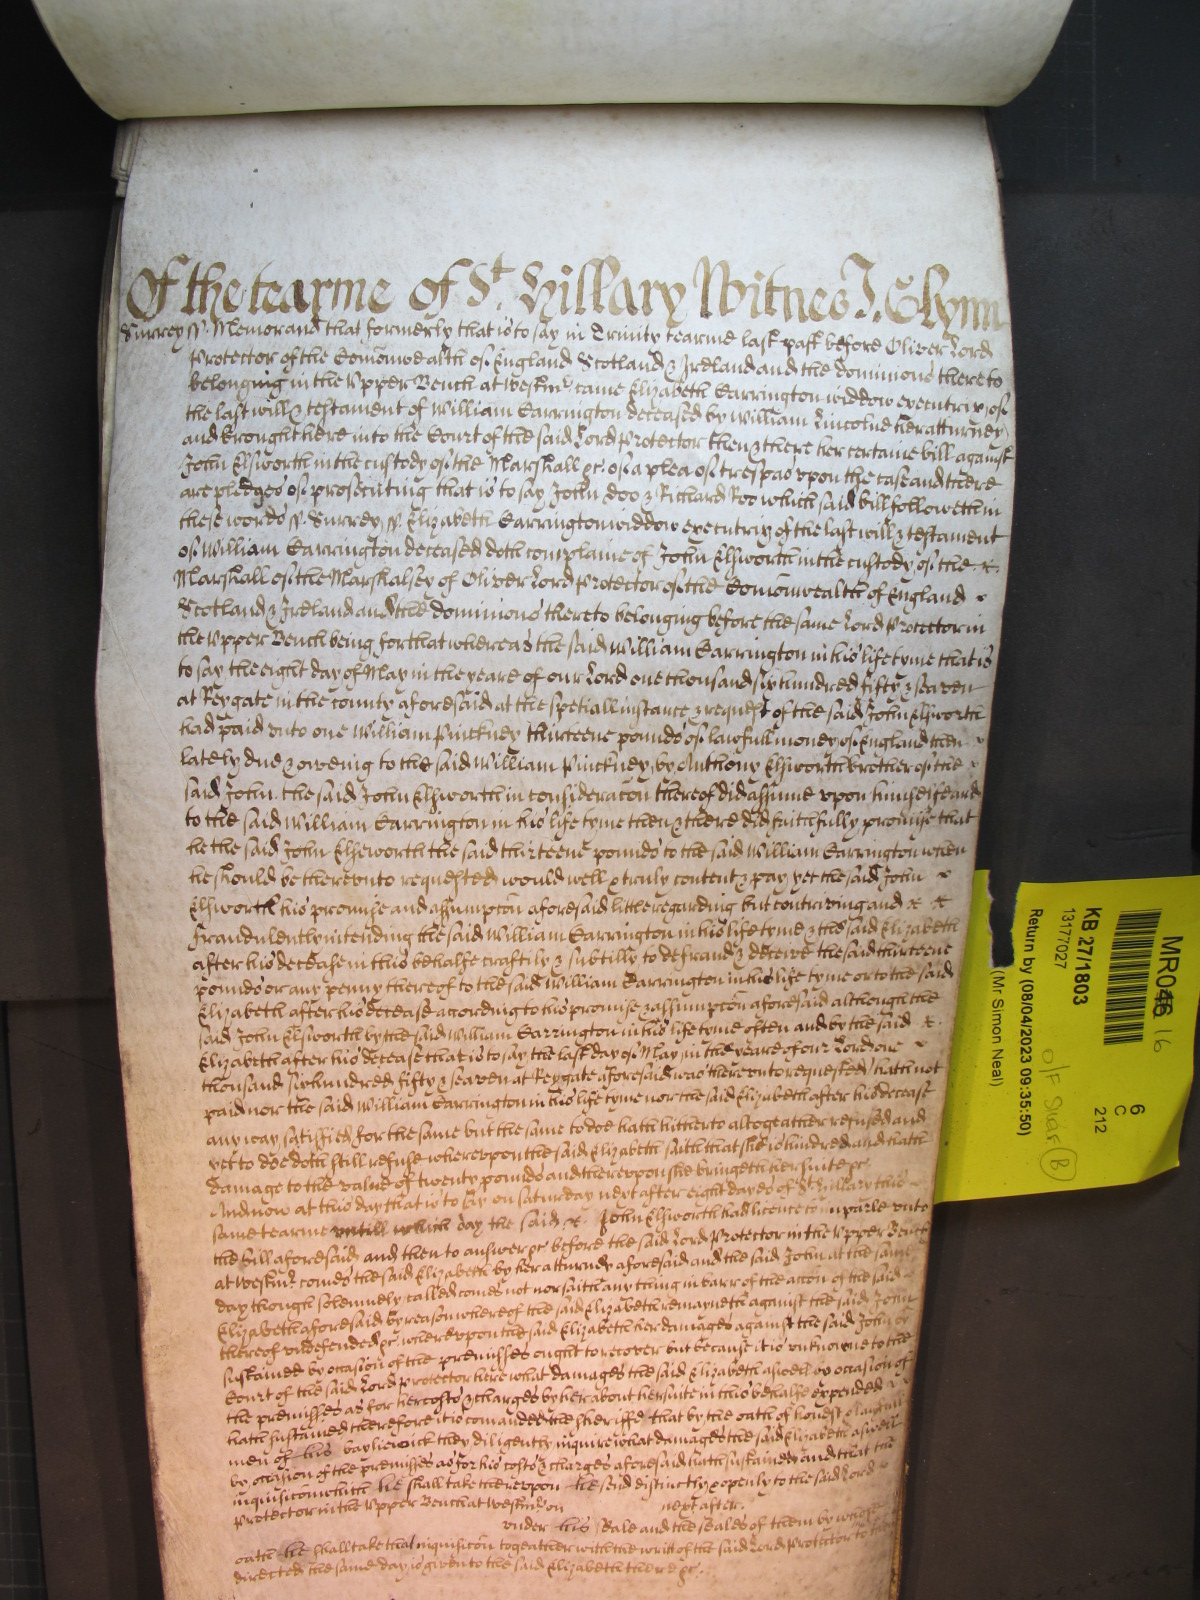 Of the tearme of St. Hillary Witnes J. Glynn
Surrey ss. Memorand that formerly that is to say in Trinity tearme last past before Oliver Lord
Protector of the Comonwealth of England Scotland & Ireland and the dominions there to
belonging in the Upper Bench at Westmr. came Elizabeth Carrington widdow executrix of
the last will & testament of William Carrington deceased by William Lincolne her atturney
and brought here into the Court of the said Lord Protector then & there her certaine bill against
John Elsworth in the custody of the Marshall &c. of a plea of trespas upon the case and there
are pledges of prosecuting that is to say John Doo & Richard Roo which said bill followeth in
these words ss. Surrey ss. Elizabeth Carrington widdow executrix of the last will & testament
of William Carrington deceased doth complaine of John Elsworth in the custody of the
Marshall of the Marshalsey of Oliver Lord Protector of the Comonwealth of England
Scotland & Ireland and the dominions thereto belonging before the same Lord Protector in
the Upper Bench being for that whereas the said William Carrington in his life tyme that is
to say the eight day of May in the yeare of our Lord one thousand six hundred fifty & seaven
at Reygate in the county aforesaid at the spetiall instance & request of the said John Elsworth
had paid unto one William Pinckney thirteene pounds of lawfull money of England then
lately due & oweing to the said William Pinckney by Anthony Elsworth brother of the
said John. the said John Elsworth in consideracon thereof did assume upon himselfe and
to the said William Carrington in his life tyme then & there did faithfully promise that
he the said John Elseworth the said thirteene pounds to the said William Carrington when
he should be thereunto requested would well & truly content & pay yet the said John
Elsworth his promise and assumpcon aforesaid little regarding but contriving and
fraudulently intending the said William Carrington in his life tyme & the said Elizabeth
after his decease in this behalfe craftily & subtilly to defraud & deceive the said thirteene
pounds or any penny thereof to the said William Carrington in his life tyme or to the said
Elizabeth after his decease according to his promise & assumpcon aforesaid although the
said John Elsworth by the said William Carrington in his life tyme often and by the said
Elizabeth after his decease that is to say the last day of May in the yeare of our Lord one
thousand six hundred fifty & seaven at Reygate aforesaid was thereunto requested hath not
paid nor the said William Carrington in his life tyme nor the said Elizabeth after his decease
any way satisfied for the same but the same to doe hath hitherto altogeather refused and
yet to doe doth still refuse whereupon the said Elizabeth saith that she is hindred and hath
damage to the value of twenty pounds and thereupon she bringeth her suite &c.
And now at this day that is to say on Saturday next after eight dayes of St. Hillary this
same tearme untill which day the said John Elsworth had licence to imparle unto
the bill aforesaid and then to answer &c before the said Lord Protector in the Upper Bench
at Westmr. comes the said Elizabeth by her atturney aforesaid and the said John at the same
day though solemnely called comes not nor saith any thing in barr of the accon of the said
Elizabeth aforesaid by reason whereof the said Elizabeth remayneth against the said John
thereof undefended &c. whereupon the said Elizabeth her damages against the said John by
sustained by occasion of the premisses ought to recover but because it is unknowne to the
Court of the said Lord Protector here what damages the said Elizabeth aswell by occasion of
the premisses as for her costs & charges by her about her suite in this behalfe expended
hath sustained therefore it is comanded the sheriffe that by the oath of honest & lawfull
men of his bayliewick they diligently inquire what damages the said Elizabeth aswell
by occasion of the premisses as for his costs & charges aforesaid hath sustained and that the
inquisicon which he shall take thereupon he send distinctly & openly to the said Lord
Protector in the Upper Bench at Westmr. on next after.
under his Seale and the seales of them by whose
oath he shall take that inquisicon togeather with the writt of the said Lord Protector to
directed the same day is given to the said Elizabeth there &c.
MR046 16
6
C
212
KB 27/1803
13177027
O/F Shelf B
Return by (08/04/2023 09:35:50)
(Mr Simon Neal)